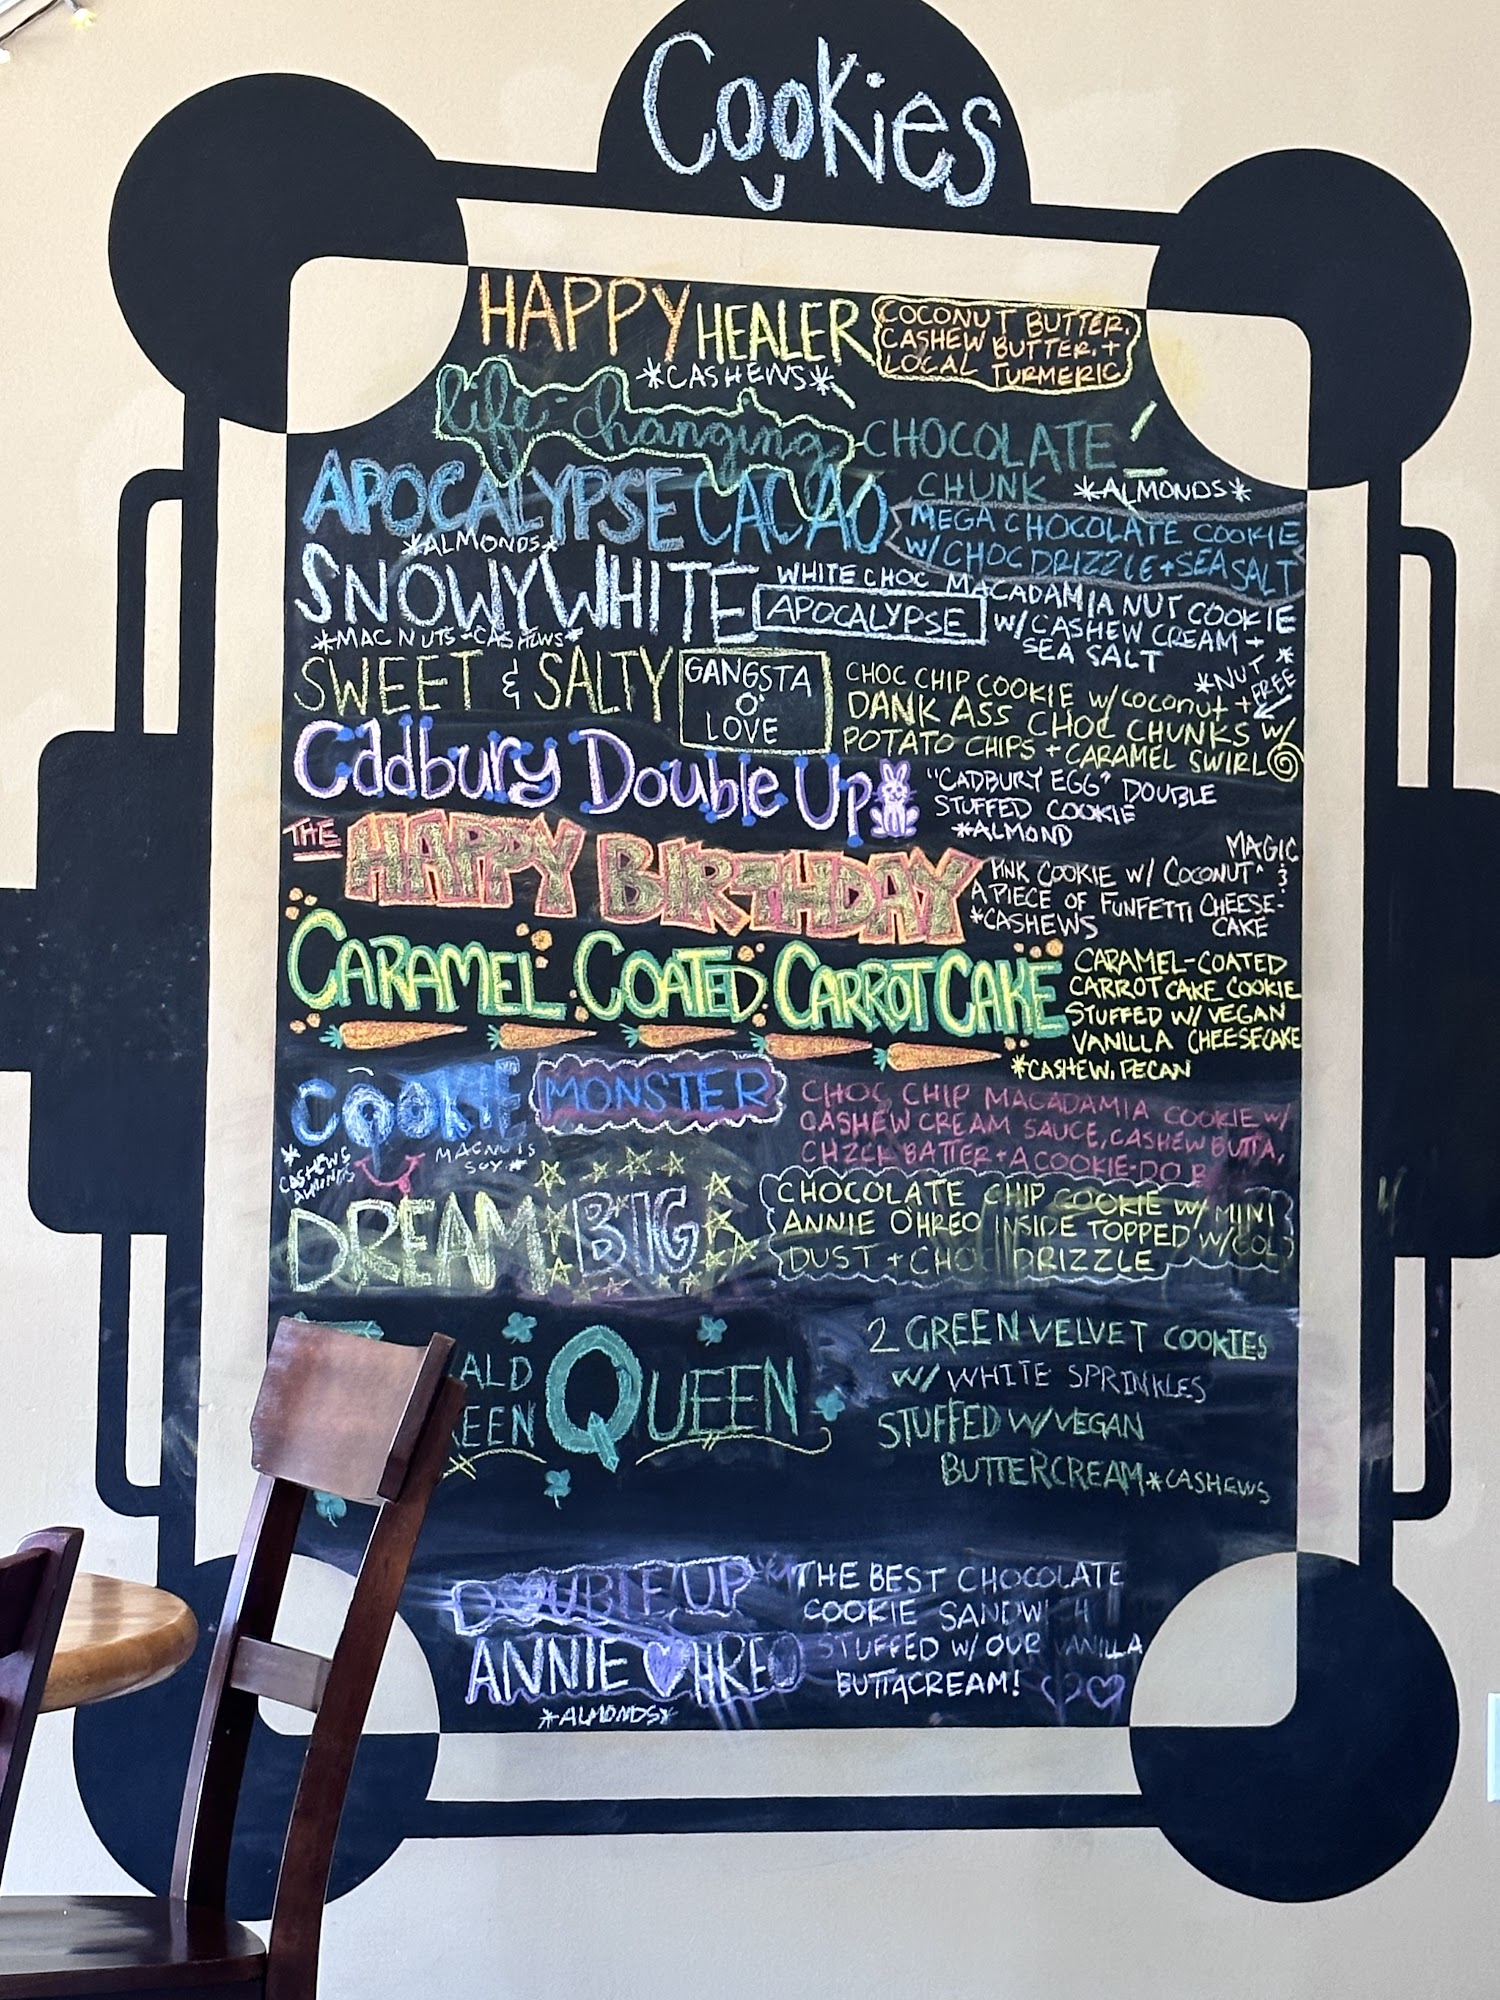 Cookies
HAPPY HEALER
COCONUT BUTTER,
CASHEW BUTTER, +
LOCAL TURMERIC
*CASHEWS*
life-changing CHOCOLATE
CHUNK *ALMONDS*
APOCALYPSE CACAO
*ALMONDS*
MEGA CHOCOLATE COOKIE
W/ CHOC DRIZZLE + SEA SALT
SNOWY WHITE
APOCALYPSE
*MAC NUTS - CASHEWS*
WHITE CHOC MACADAMIA NUT COOKIE
W/ CASHEW CREAM +
SEA SALT
SWEET & SALTY
GANGSTA
O'
LOVE
*NUT FREE*
CHOC CHIP COOKIE W/ COCONUT +
DANK ASS CHOC CHUNKS W/
POTATO CHIPS + CARAMEL SWIRL
Cadbury Double Up
"CADBURY EGG" DOUBLE
STUFFED COOKIE
*ALMOND
THE HAPPY BIRTHDAY
MAGIC
PINK COOKIE W/ COCONUT &
A PIECE OF FUNFETTI CHEESE-
CAKE
*CASHEWS
CARAMEL COATED CARROT CAKE
CARAMEL-COATED
CARROT CAKE COOKIE
STUFFED W/ VEGAN
VANILLA CHEESECAKE
*CASHEW, PECAN
COOKIE MONSTER
*CASHEWS
ALMONDS
SOY*
CHOC CHIP MACADAMIA COOKIE W/
CASHEW CREAM SAUCE, CASHEW BUTTA,
CHZCK BATTER + A COOKIE-DO
DREAM BIG
CHOCOLATE CHIP COOKIE W/ MINI
ANNIE O'HREO INSIDE TOPPED W/ GOLD
DUST + CHOC DRIZZLE
ALD
EEN QUEEN
2 GREEN VELVET COOKIES
W/ WHITE SPRINKLES
STUFFED W/ VEGAN
BUTTERCREAM *CASHEWS
DOUBLE UP
ANNIE HREO
*ALMONDS*
THE BEST CHOCOLATE
COOKIE SANDWICH
STUFFED W/ OUR VANILLA
BUTTACREAM!